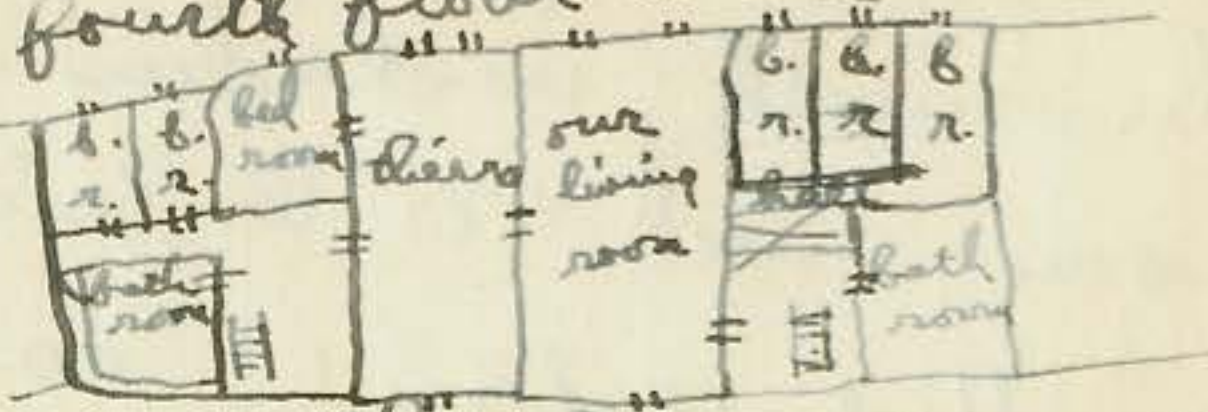 fourth floor
b. r.
b. r.
bed room
theirs
our living room
b. r.
b. r.
b r.
hall
bath room
bath room